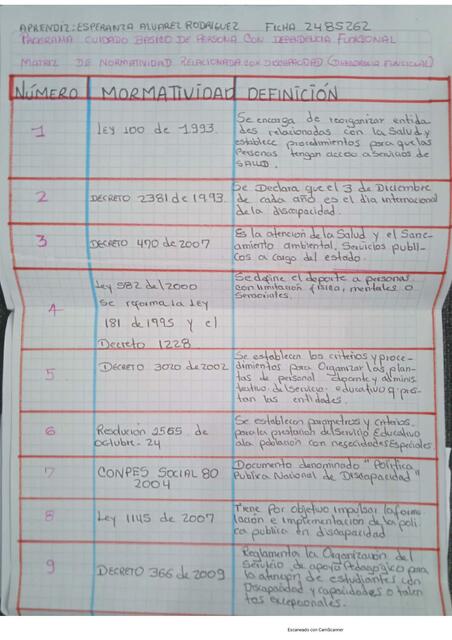 APRENDIZ: ESPERANZA ALVAREZ RODRIGUEZ FICHA 2485262
PROGRAMA CUIDADO BASICO DE PERSONA CON DEPENDENCIA FUNCIONAL
MATRIZ DE NORMATIVIDAD RELACIONADA CON DISCAPACIDAD (DIVERGENCIA FUNCIONAL)
NÚMERO NORMATIVIDAD DEFINICIÓN
1
Ley 100 de 1993
Se encarga de reorganizar entida
des relacionadas con la Salud y
establece procedimientos para que las
Personas tengan acceso a Servicios de
SALUD.
2
DECRETO 2381 de 1993
Se Declara que el 3 de Diciembre
de cada año es el día internacional
de la discapacidad.
3
DECRETO 470 de 2007
Es la atención de la Salud y el Sane-
amiento ambiental, Servicios publi-
cos a cargo del estado.
4
Ley 582 del 2000
se reforma la Ley
181 de 1995 y el
Decreto 1228
Se define el deporte a personas
con limitación física, mentales o
sensoriales.
5
DECRETO 3020 de 2002
Se establecen los criterios y proce-
dimientos para Organizar las plan-
tas de personal docente y adminis
trativo del servicio educativo q pres-
tan las entidades.
6
Resolución 2565 de
octubre - 24
Se establecen parametros y criterios
para la prestación del Servicio Educativo
a la población con necesidades Especiales
7
CONPES SOCIAL 80
2004
Documento denominado "Política
Publica Nacional de Discapacidad"
8
Ley 1145 de 2007
Tiene Por objetivo impulsar la formu
lación e implementación de la polí
ca publica en discapacidad
9
DECRETO 366 de 2009
Reglamenta la Organización del
Servicio de apoyo Pedagógico para
la atención de estudiantes con
Discapacidad y capacidades o talen
tos excepcionales.
Escaneado con CamScanner